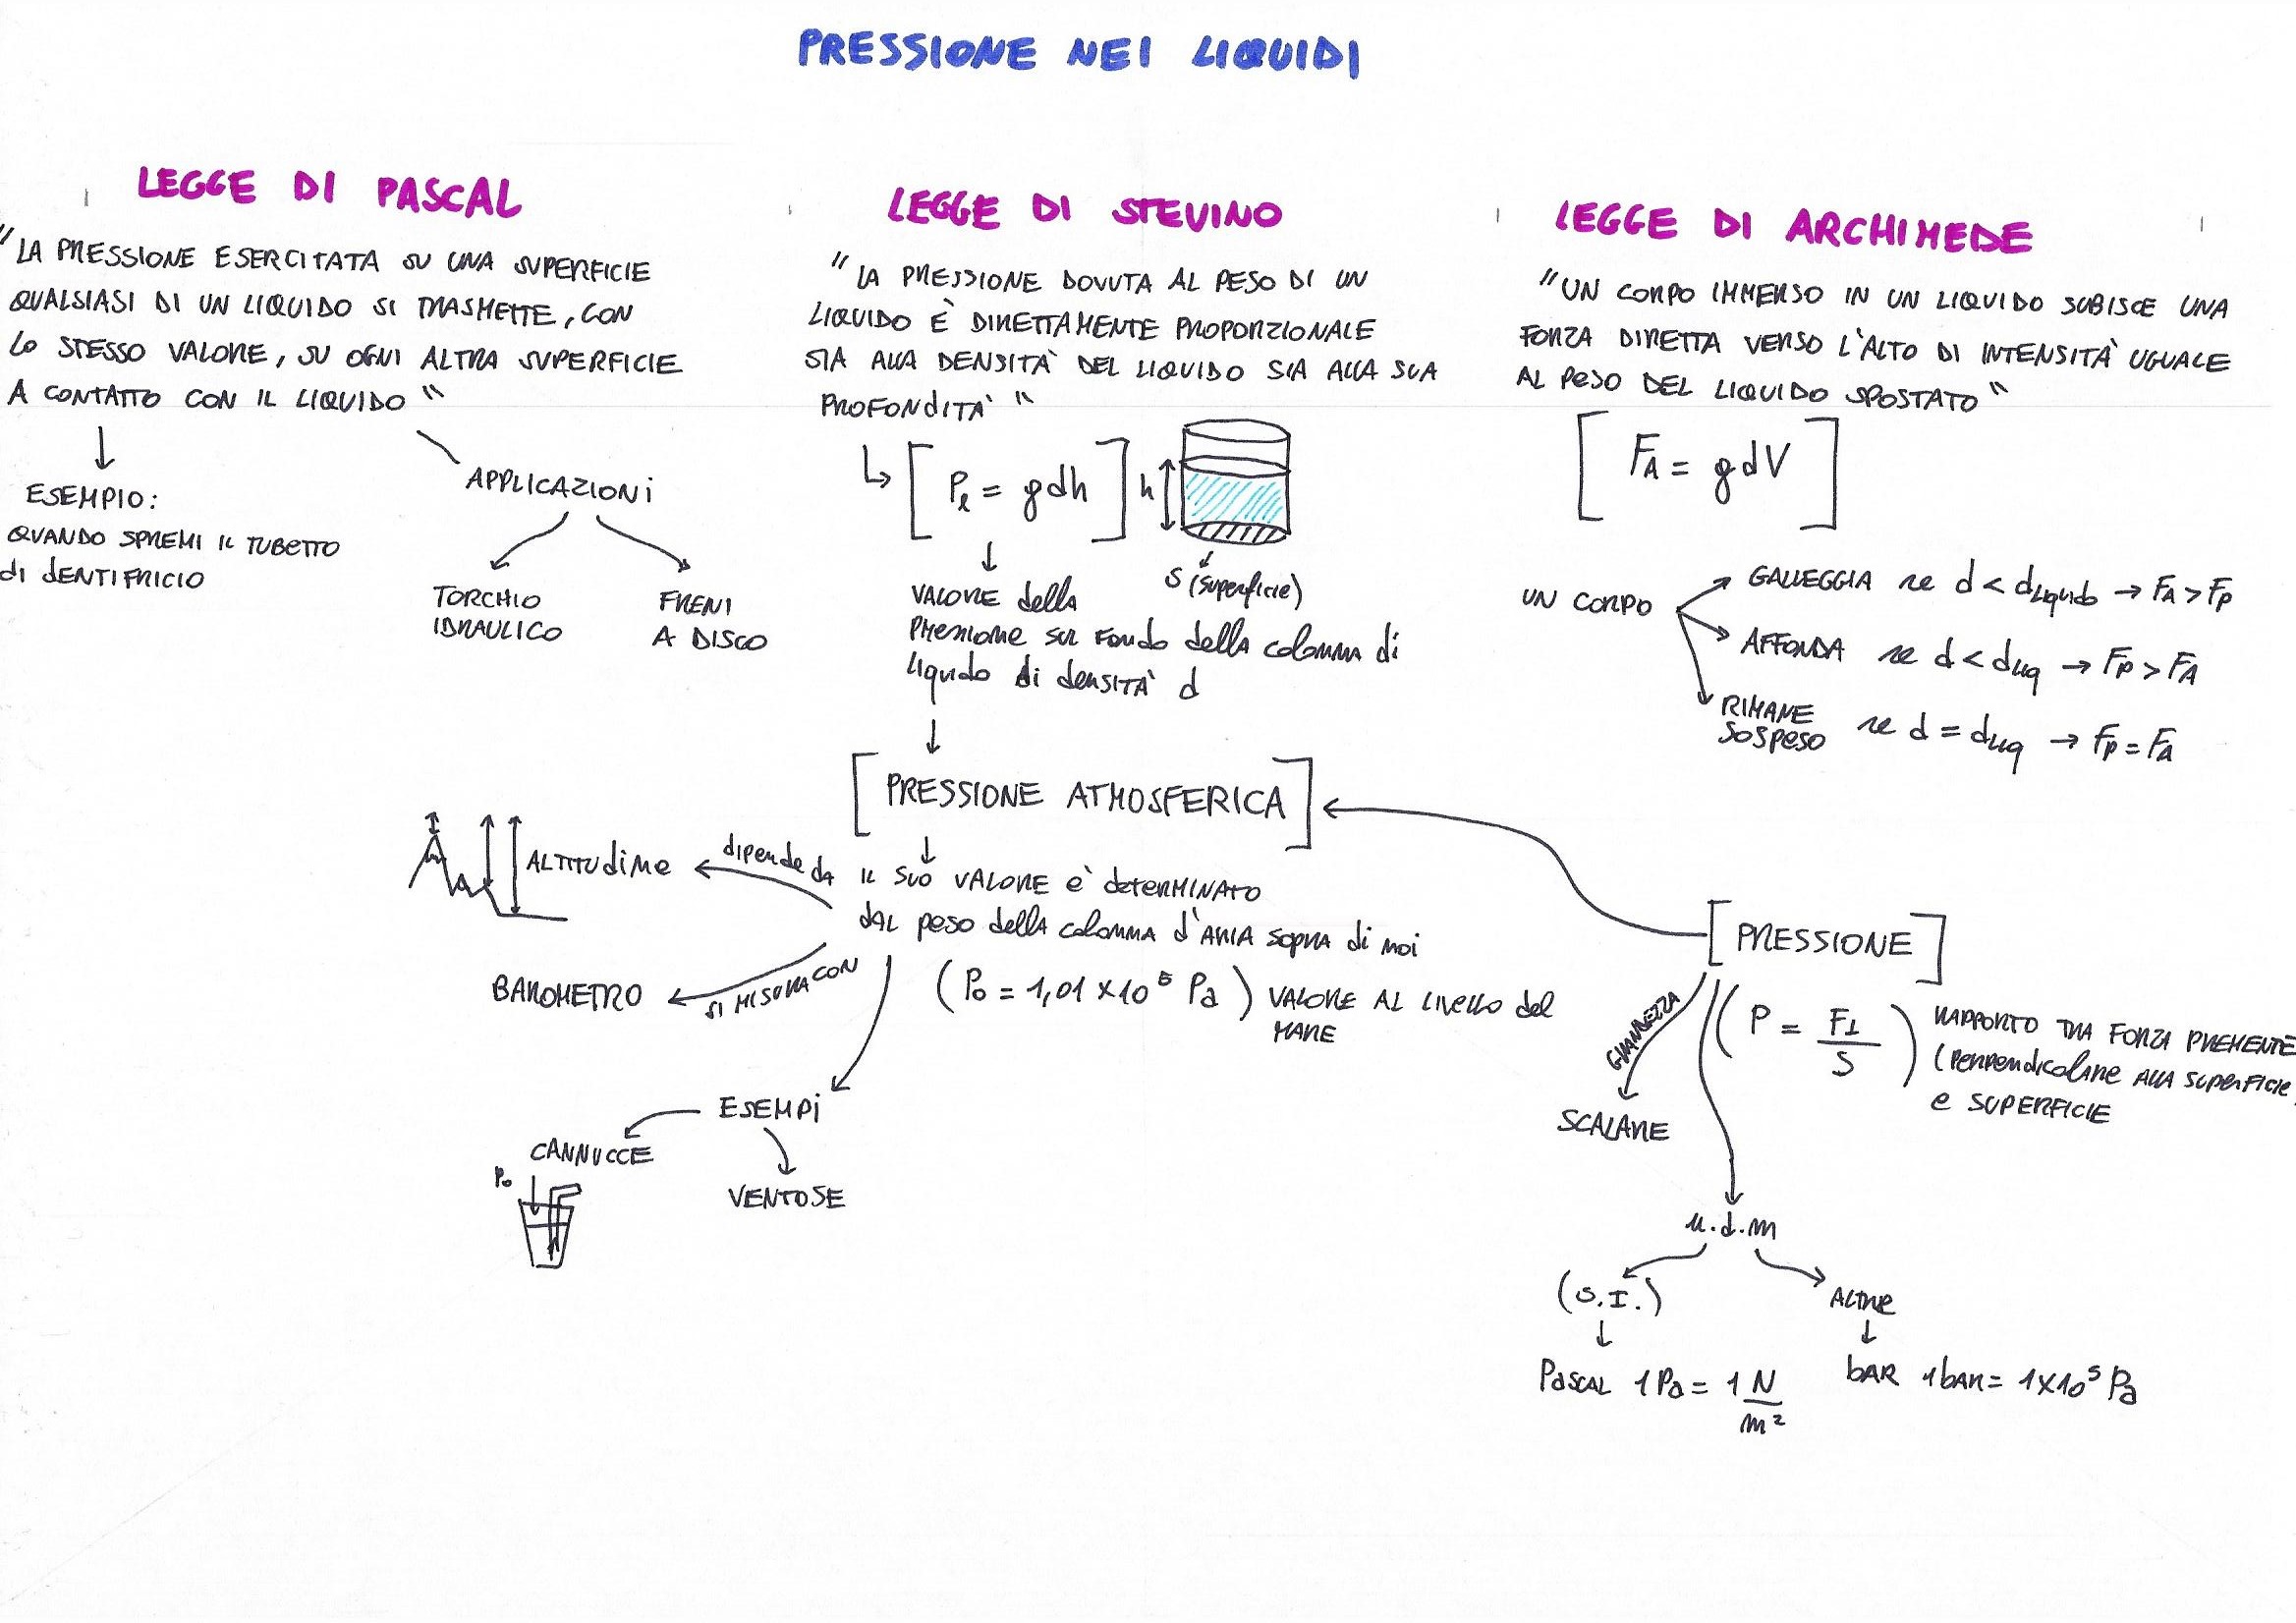 PRESSIONE NEI LIQUIDI
LEGGE DI PASCAL
"LA PRESSIONE ESERCITATA SU UNA SUPERFICIE
QUALSIASI DI UN LIQUIDO SI TRASMETTE, CON
LO STESSO VALORE, SU OGNI ALTRA SUPERFICIE
A CONTATTO CON IL LIQUIDO"
ESEMPIO:
QUANDO SPREMI IL TUBETTO
di dENTIFRICIO
APPLICAZIONi
TORCHIO
IDRAULICO
FRENI
A DISCO
LEGGE DI STEVINO
"LA PRESSIONE DOVUTA AL PESO DI UN
LIQUIDO È DIRETTAMENTE PROPORZIONALE
SIA ALLA DENSITÀ DEL LIQUIDO SIA ALLA SUA
PROFONdITÀ"
[Pl = gdh]
h
S (superficie)
VALORE della
PRessione sul FONdo della colonna di
liquido di densITÀ d
LEGGE DI ARCHIMEDE
"UN CORPO IMMERSO IN UN LIQUIDO SUBISCE UNA
FORZA DIRETTA VERSO L'ALTO DI INTENSITÀ UGUALE
AL PESO DEL LIQUIDO SPOSTATO"
[FA = gdV]
UN CORPO
GALLEGGIA se d < dLiquido → FA > Fp
AFFONDA se d < dLiq → Fp > FA
RIMANE
SOSPESO se d = dLiq → Fp = FA
[PRESSIONE ATMOSFERICA]
IL SUO VALORE è deTERMINATO
dAL peso dellA colonna d'ARIA sopra di noi
(Po = 1,01 × 10⁵ Pa) VALORE AL LIVELLO del
MARE
dipende da
ALTITUdiNe
SI MISURA CON
BAROMETRO
ESEMPi
CANNUCCE
Po
VENTOSE
[PRESSIONE]
(P = F⊥/S) RAPPORTO TRA FORZA PREMENTE
(PERPendicolARe AllA SUPERFICIE)
e SUPERFICIE
GRANDEZZA
SCALARE
u.d.m
(S.I.)
PASCAL 1 Pa = 1 N/m²
ALTRe
bAR 1 bar = 1×10⁵ Pa